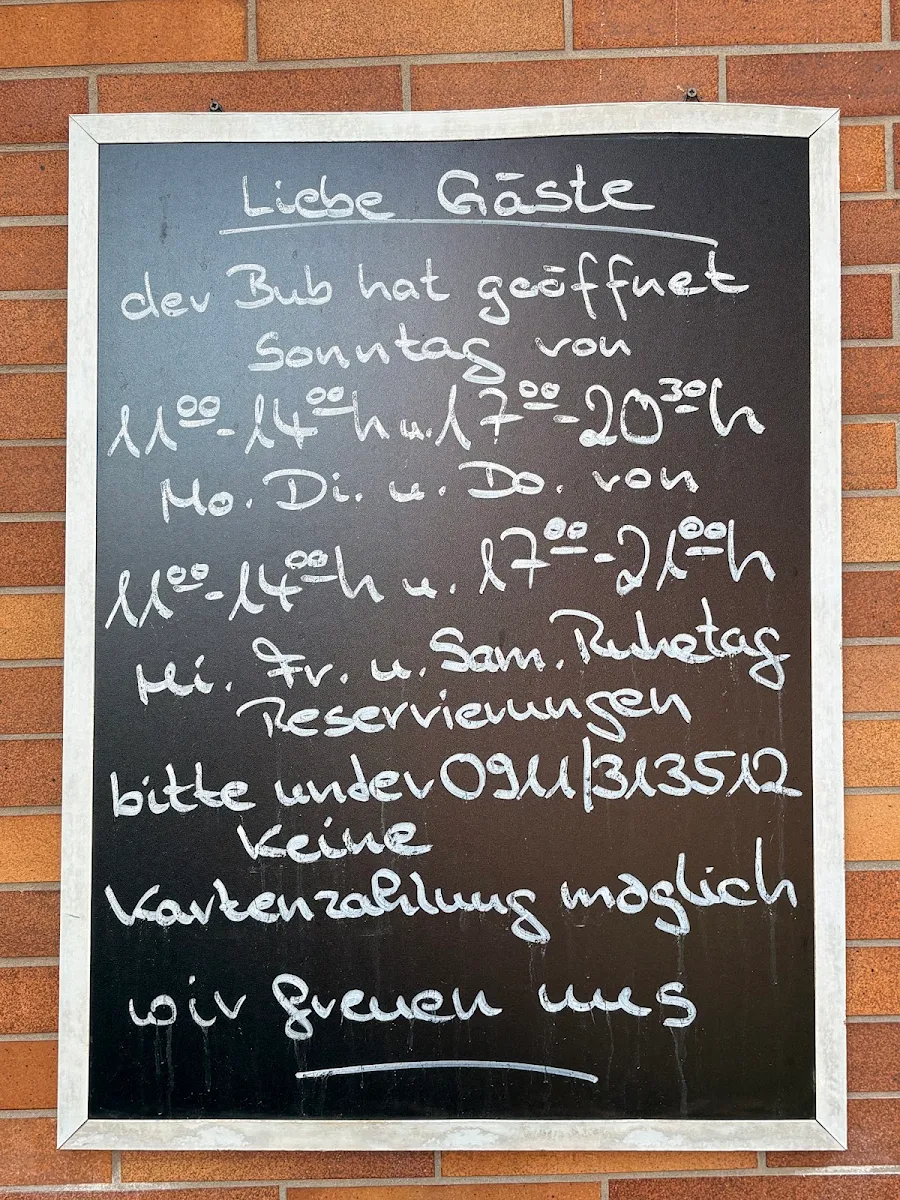 Liebe Gäste
der Bub hat geöffnet
Sonntag von
11⁰⁰-14⁰⁰h u. 17⁰⁰-20³⁰h
Mo. Di. u. Do. von
11⁰⁰-14⁰⁰h u. 17⁰⁰-21⁰⁰h
Mi. Fr. u. Sam. Ruhetag
Reservierungen
bitte under 0911/313512
Keine
Kartenzahlung möglich
wir freuen uns